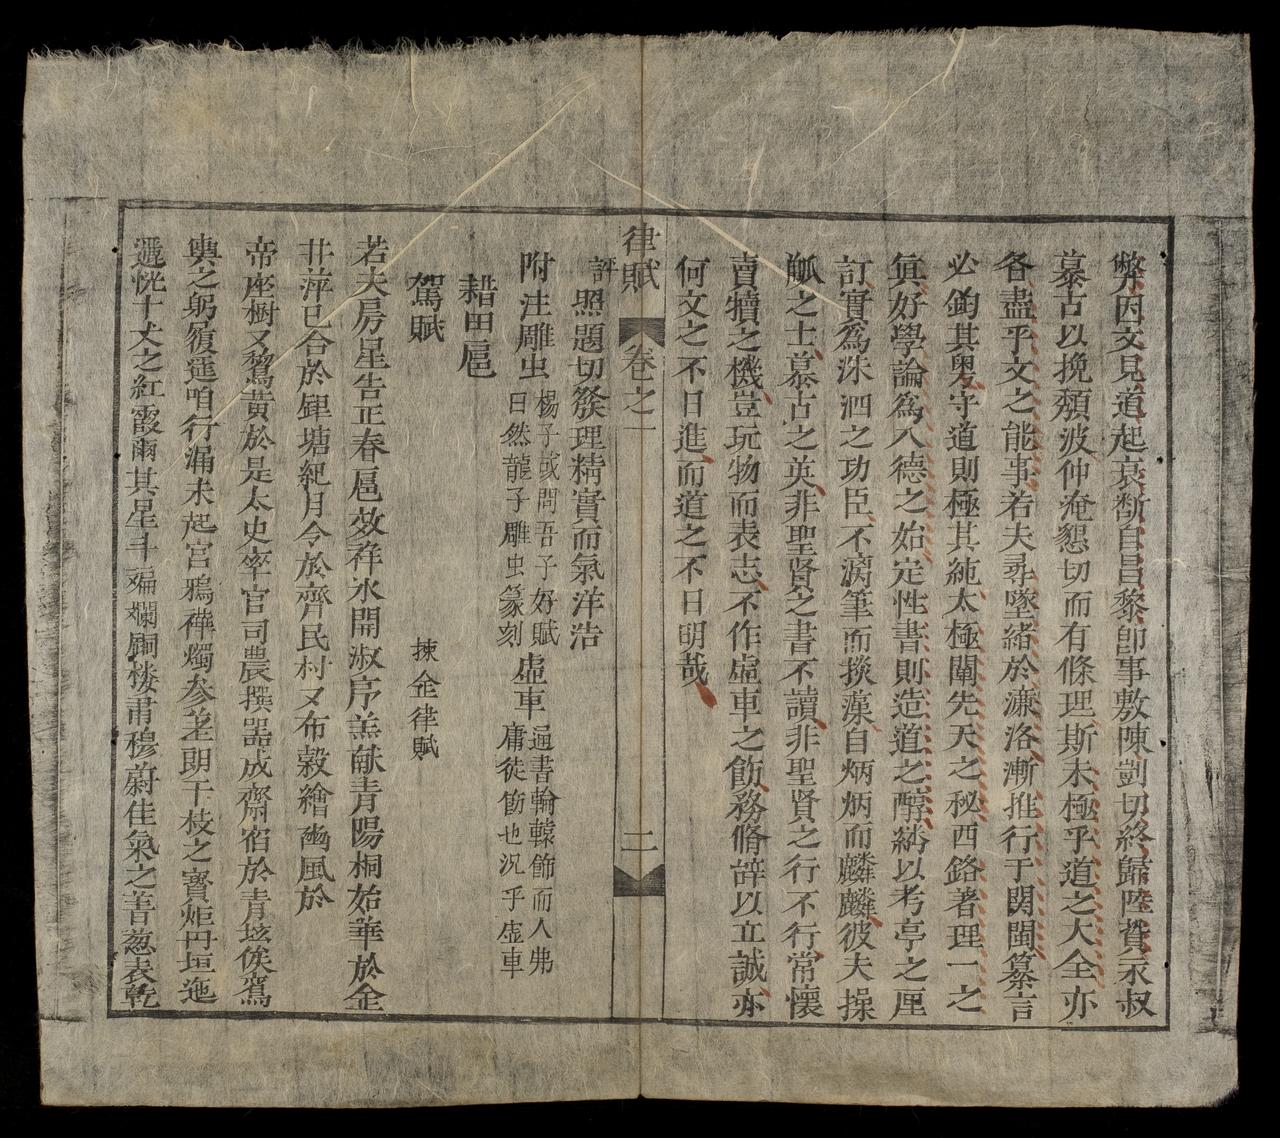 弊因文見道起衰斷自昌黎卽事敷陳剴切終歸陸贄永叔
慕古以挽頹波仲淹懇切而有條理斯未極乎道之大全亦
各盡乎文之能事若夫尋墜緒於濂洛漸推行于関閩纂言
必鉤其要守道則極其純太極闡先天之秘西銘著理一之
眞好學論爲八德之始定性書則造道之醇紛以考亭之厘
訂實爲洙泗之功臣不漓筆而掞藻自炳炳而麟麟彼夫操
觚之士慕古之英非聖賢之書不讀非聖賢之行不行常懷
賣犢之機豈玩物而表志不作虛車之飭務脩辞以立誠亦
何文之不日進而道之不日明哉
律賦 卷之一 二
評 照題切發理精實而氣洋浩
附注雕虫 楊子或問吾子好賦日然龍子雕虫篆刻 虛車 通書輪轅飾而人弗庸徒飾也況乎虛車
耤田扈
駕賦 揀金律賦
若夫房星告正春扈效祥氷開淑序羔献青陽桐始華於金
井萍已合於銀塘紀月令於齊民村又布穀繪豳風於
帝座樹又鶩黄於是太史率官司農撰器成齋宿於青垓俟鸞
輿之躬履遲咱行漏未起宮鴉襷燭参差朗干枝之寶炬丹垣迤
遞恍十丈之紅霞爾其星斗斒斕嗣楼肅穆蔚佳氣之菩葱表乾